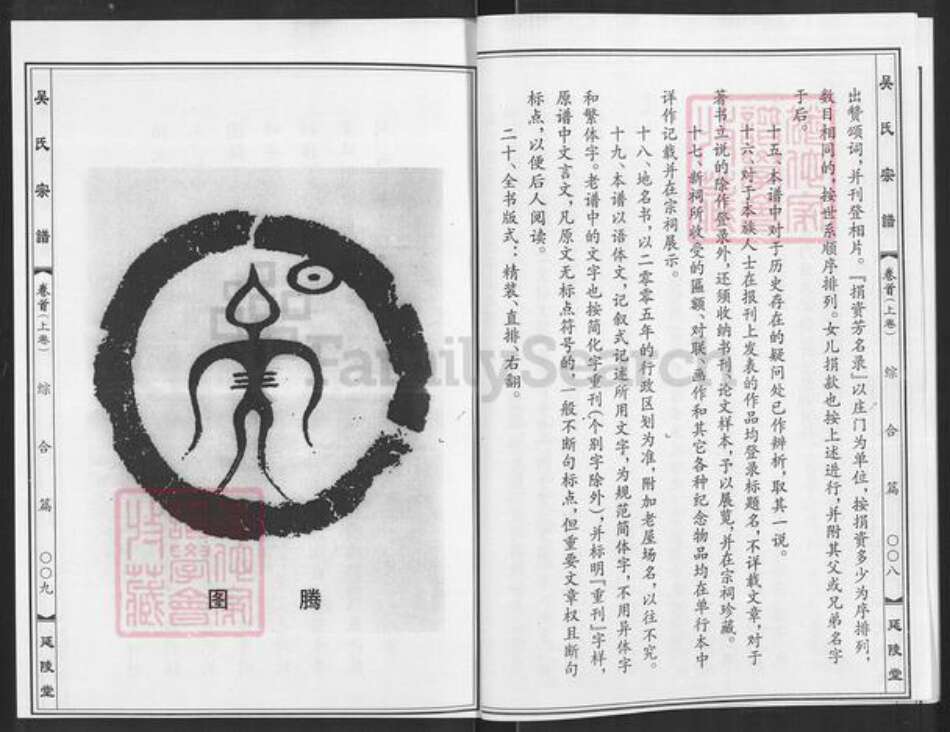 吴氏宗谱
卷首(上卷)
综合篇
〇〇八
延陵堂
出赞颂词,并刊登相片。『捐资芳名录』以庄门为单位、按捐资多少为序排列,
数目相同的,按世系顺序排列。女儿捐款也按上述进行,并附其父或兄弟名字
于后。
十五、本谱中对于历史存在的疑问处已作辨析,取其一说。
十六、对于本族人士在报刊上发表的作品均登录标题名,不详载文章,对于
著书立说的除作登录外,还须收纳书刊、论文样本,予以展览,并在宗祠珍藏。
十七、新祠所收受的匾额、对联、画作和其它各种纪念物品均在单行本中
详作记载并在宗祠展示。
十八、地名书,以二零零五年的行政区划为准,附加老屋场名,以往不究。
十九、本谱以语体文,记叙式记述所用文字,为规范简体字,不用异体字
和繁体字。老谱中的文字也按简化字重刊(个别字除外),并标明『重刊』字样,
原谱中文言文,凡原文无标点符号的,一般不断句标点,但重要文章权且断句
标点,以便后人阅读。
二十、全书版式:精装、直排、右翻。
图 腾
吴氏宗谱
卷首(上卷)
综合篇
〇〇九
延陵堂
FamilySearch